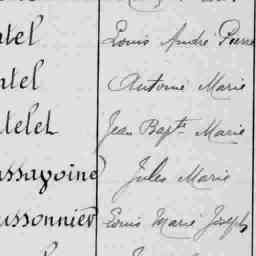 ntel Louis André Pierre
ntel Antoine Marie
telet Jean Bapte Marie
assagoine Jules Marie
ussonnier Louis Marie Joseph